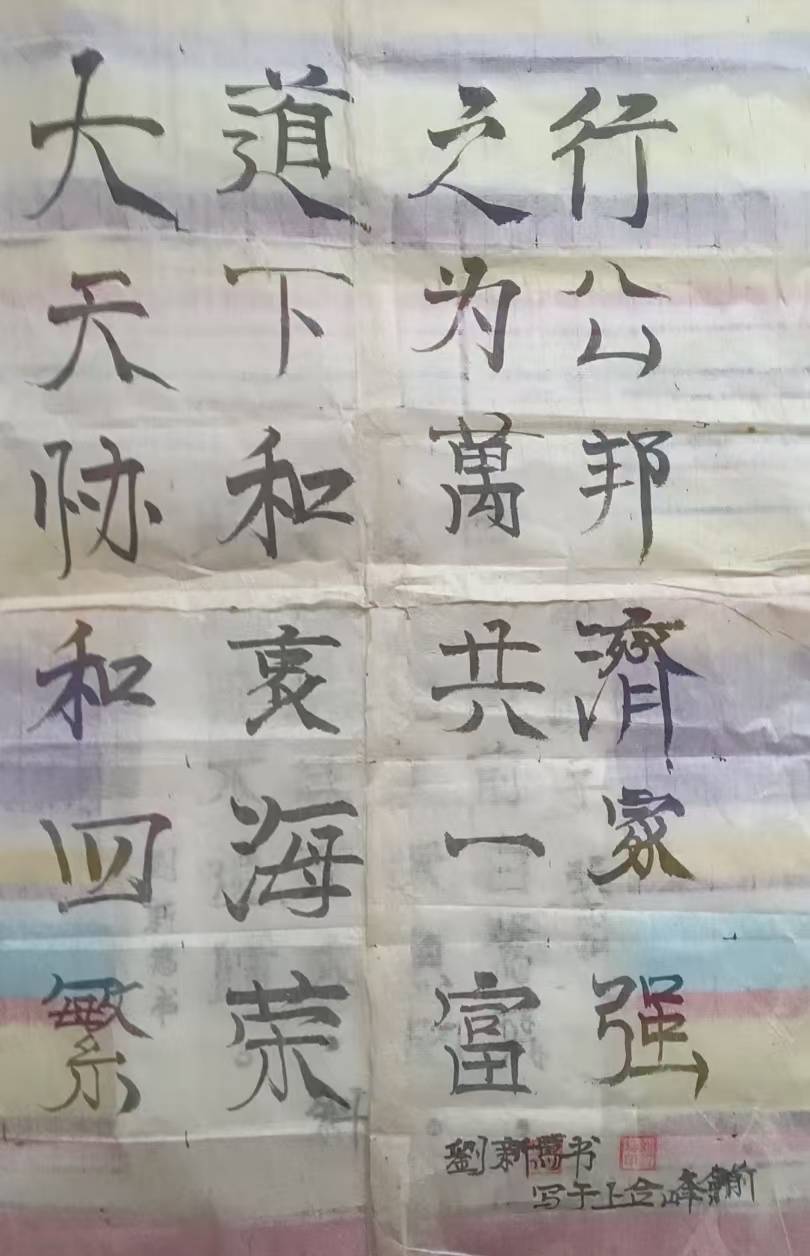 大道之行
天下为公
协和萬邦
和衷共濟
四海一家
繁荣富强
劉新萬书
写于上合峰會前